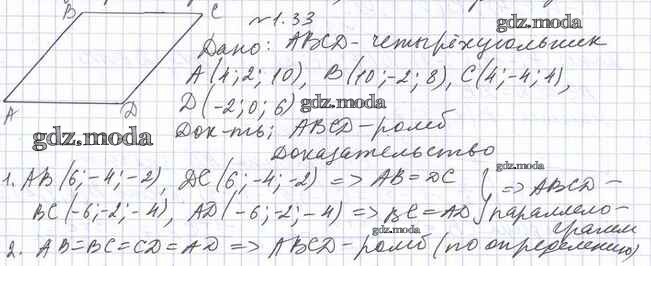 B C
№1.33
gdz.moda
Дано: ABCD - четырёхугольник
A(4; 2; 10), B(10; -2; 8), C(4; -4; 4),
D(-2; 0; 6) gdz.moda
A D
gdz.moda
Док-ть: ABCD - ромб
Доказательство
gdz.moda
1. AB(6; -4; -2), DC(6; -4; -2) => AB = DC } => ABCD -
BC(-6; -2; -4), AD(-6; -2; -4) => BC = AD параллело-
грамм
gdz.moda
2. AB = BC = CD = AD => ABCD - ромб (по определению)